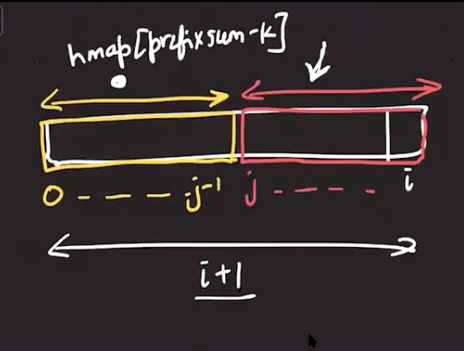 hmap[prefixsum-k]
0 - - - - j-1 j - - - - i
i+1